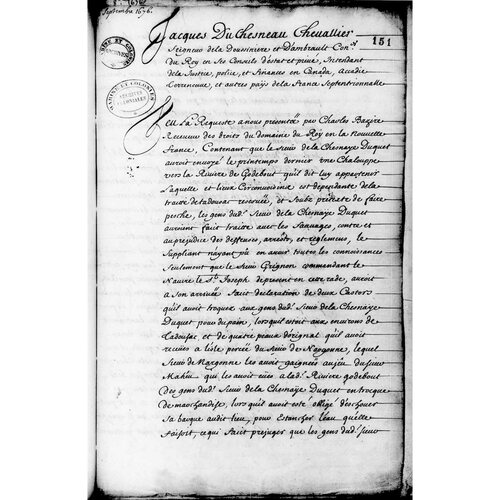 Septembre 1676.
151
Jacques DuChesneau Chevallier
Seigneur de la Doussiniere et Dambrault Con.er
du Roy en Ses Conseils d'estat et privé, Intendant
de la Justice, police, et finances en Canada, Accadie
Terreneuve, et autres pays de la france Septentrionnalle
MARINE ET COLONIES
Veu La Requeste a nous presentée par Charles Bazire
Receveur des droits du domaine du Roy en la Nouvelle
France, Contenant que le Sieur de la Chesnaye Duquet
auroit envoyé le printemps dernier une Chalouppe
vers la Riviere de Godebout quil dit luy appartenir
Laquelle et lieux Circonvoisins est dependante de la
traitte de tadousac reservée, et Soubz pretexte de faire
pesche, les gens dud. Sieur de la Chesnaye Duquet
auroient fait traitte avec les Sauvages, contre et
au prejudice des deffenses, arrests, et reglemens, le
Suppliant n'ayant pû en avoir toutes les connoissances
Seulement que le Sieur Grignon commendant le
Navire le St. Joseph de present en cette rade, auroit
a Son arrivée fait declaration de deux Castors
qu'il avoit troquez aux gens dud. Sieur de la Chesnaye
Duquet pour du pain, lorsquil estoit aux environs de
Tadousac, et de quatre peaux dorignal quil avoit
receües a l'isle percée du Sieur de Nargonne, lequel
Sieur de Nargonne les avoit gaignées au jeu du Sieur
Mahiu qui les avoit eües a lad. Riviere godebout
des gens dud. Sieur de la Chesnaye Duquet en trocque
de marchandise, lors quil avoit esté obligé d'eschouer
Sa barque audit lieu, pour Estancher l'eau qu'elle
faisoit, ce qui fait prejuger que les gens dud. Sieur